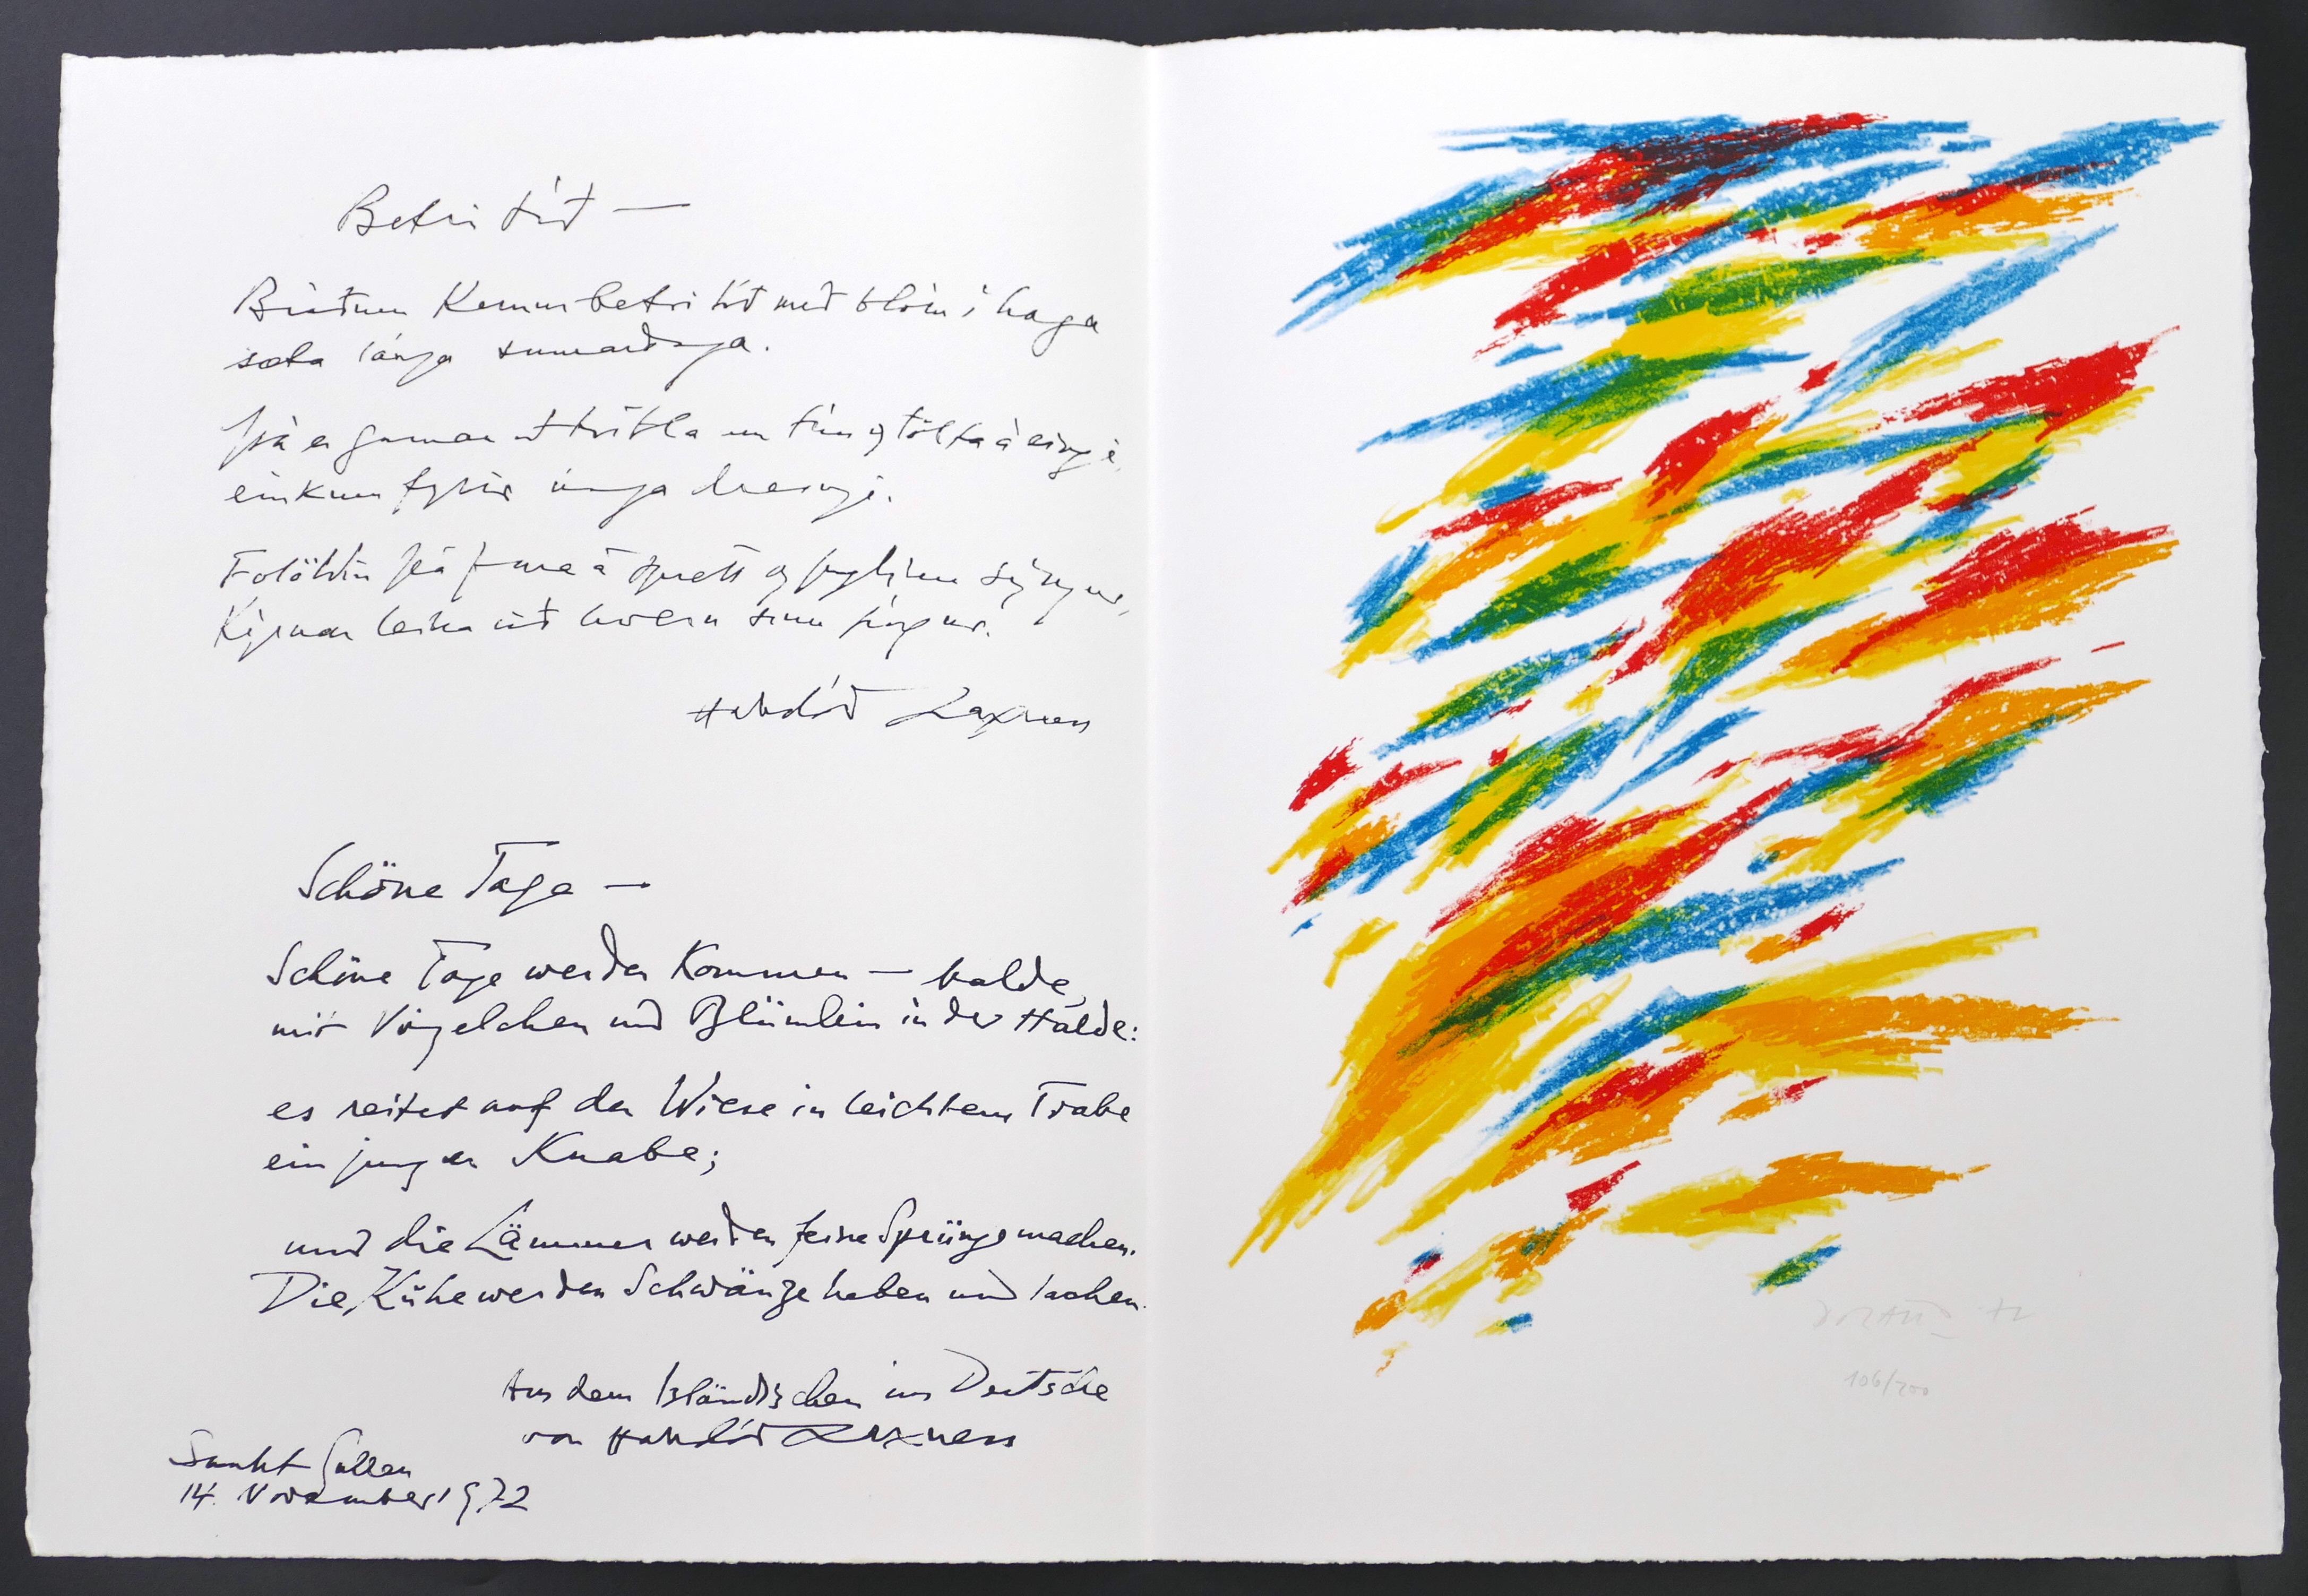 Betri tíð —
Bráðum kemur betri tíð með blóm í haga
sæta langa sumardaga.
Þá er gaman að trítla um tún og tölta á engi
einkum fyrir unga drengi.
Folöldin þá fara á sprett og fuglinn syngur,
Kýrnar leika við hvern sinn fingur.
Halldór Laxness
Schöne Tage —
Schöne Tage werden kommen — balde,
mit Vögelchen und Blümlein in der Halde:
es reitet auf der Wiese in leichtem Trabe
ein junger Knabe;
und die Lämmer werden feine Sprünge machen.
Die Kühe werden Schwänze heben und lachen.
Aus dem Isländischen ins Deutsche
von Halldór Laxness
Sankt Gallen
14. November 1972
DORAZIO 72
106/200